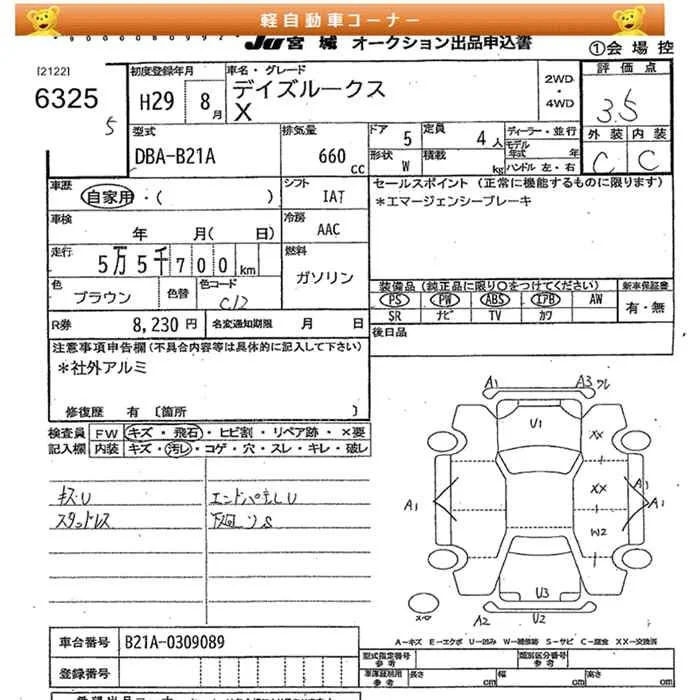 軽自動車コーナー
JU 宮城 オークション出品申込書
①会場控
[2122]
6325
5
初度登録年月
H29 8月
車名・グレード
デイズルークス
X
2WD
・
4WD
評価点
3.5
外装 内装
C C
型式
DBA-B21A
排気量
660 cc
ドア 5
定員 4人
形状 W
積載 kg
ディーラー・並行
モデル年式 年
ハンドル 左・右
車歴
自家用・( )
シフト
IAT
車検
年 月( 日)
冷房
AAC
走行
5万5千700km
燃料
ガソリン
色
ブラウン
色替
色コード
C12
R券
8,230円
名変通知期限 月 日
セールスポイント (正常に機能するものに限ります)
*エマージェンシーブレーキ
装備品 (純正品に限り〇をつけてください)
新車保証書
PS PW ABS エアB AW
SR ナビ TV カワ
有・無
後日品
注意事項申告欄(不具合内容等は具体的に記入して下さい)
*社外アルミ
修復歴 有 〔箇所 〕
検査員記入欄
FW キズ・飛石・ヒビ割・リペア跡・×要
内装 キズ・汚レ・コゲ・穴・スレ・キレ・破レ
キズU
スタッドレス
下廻りS
A1
A3ワレ
U1
XX
A1
XX
A1
A1
W2
U3
A2
U2
スペア
A-キズ E-エクボ U-凹み W-補修跡 S-サビ C-腐食 XX-交換済
車台番号 B21A-0309089
登録番号
型式指定番号
参考
類別区分番号
参考
車庫証明用
参考
長さ cm
幅 cm
高さ cm